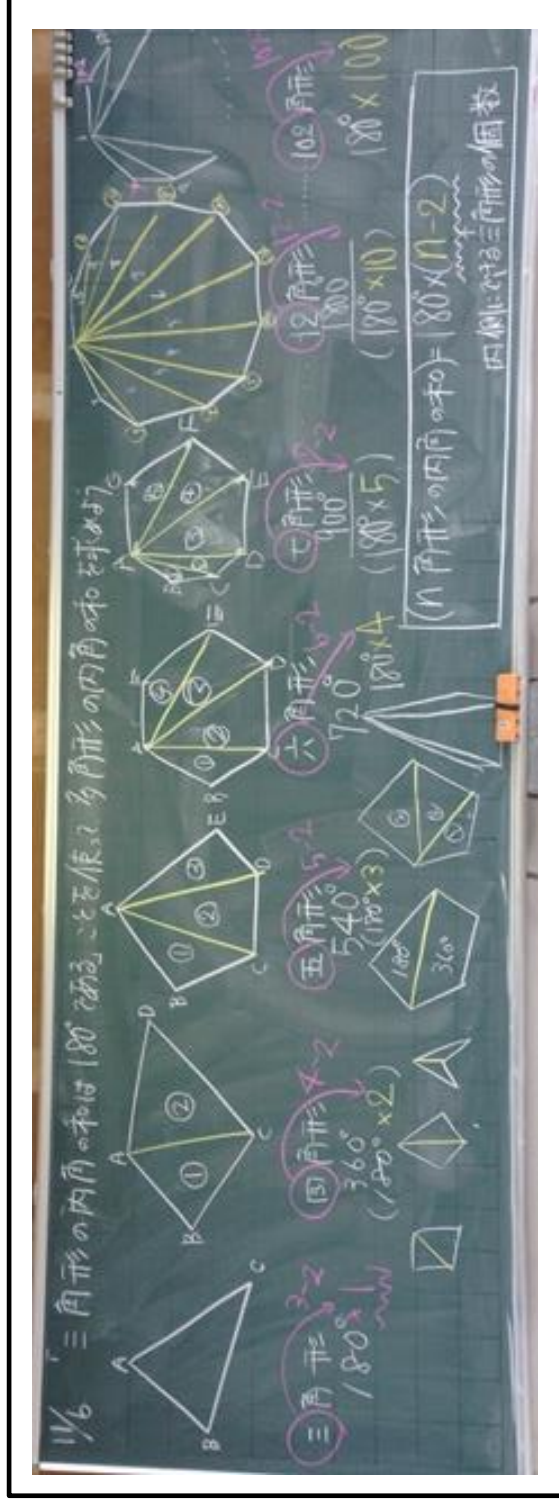 11/6 「三角形の内角の和は180°である」ことを使って多角形の内角の和を求めよう
A
B
C
A
B
C
D
① ②
A
B
C
D
E
① ② ③
A
B
D
E
① ②
A
G
B
C
D
E
F
③ ④ ⑤
三角形 3-2
180° × 1
四角形 4-2
360°
(180° × 2)
五角形 5-2
540°
(180° × 3)
六角形 6-2
720°
180° × 4
七角形 7-2
900°
(180° × 5)
12角形 12-2
1800
(180° × 10)
102角形
180° × 100
180°
360°
(n角形の内角の和) = 180° × (n-2)
内側にできる三角形の個数